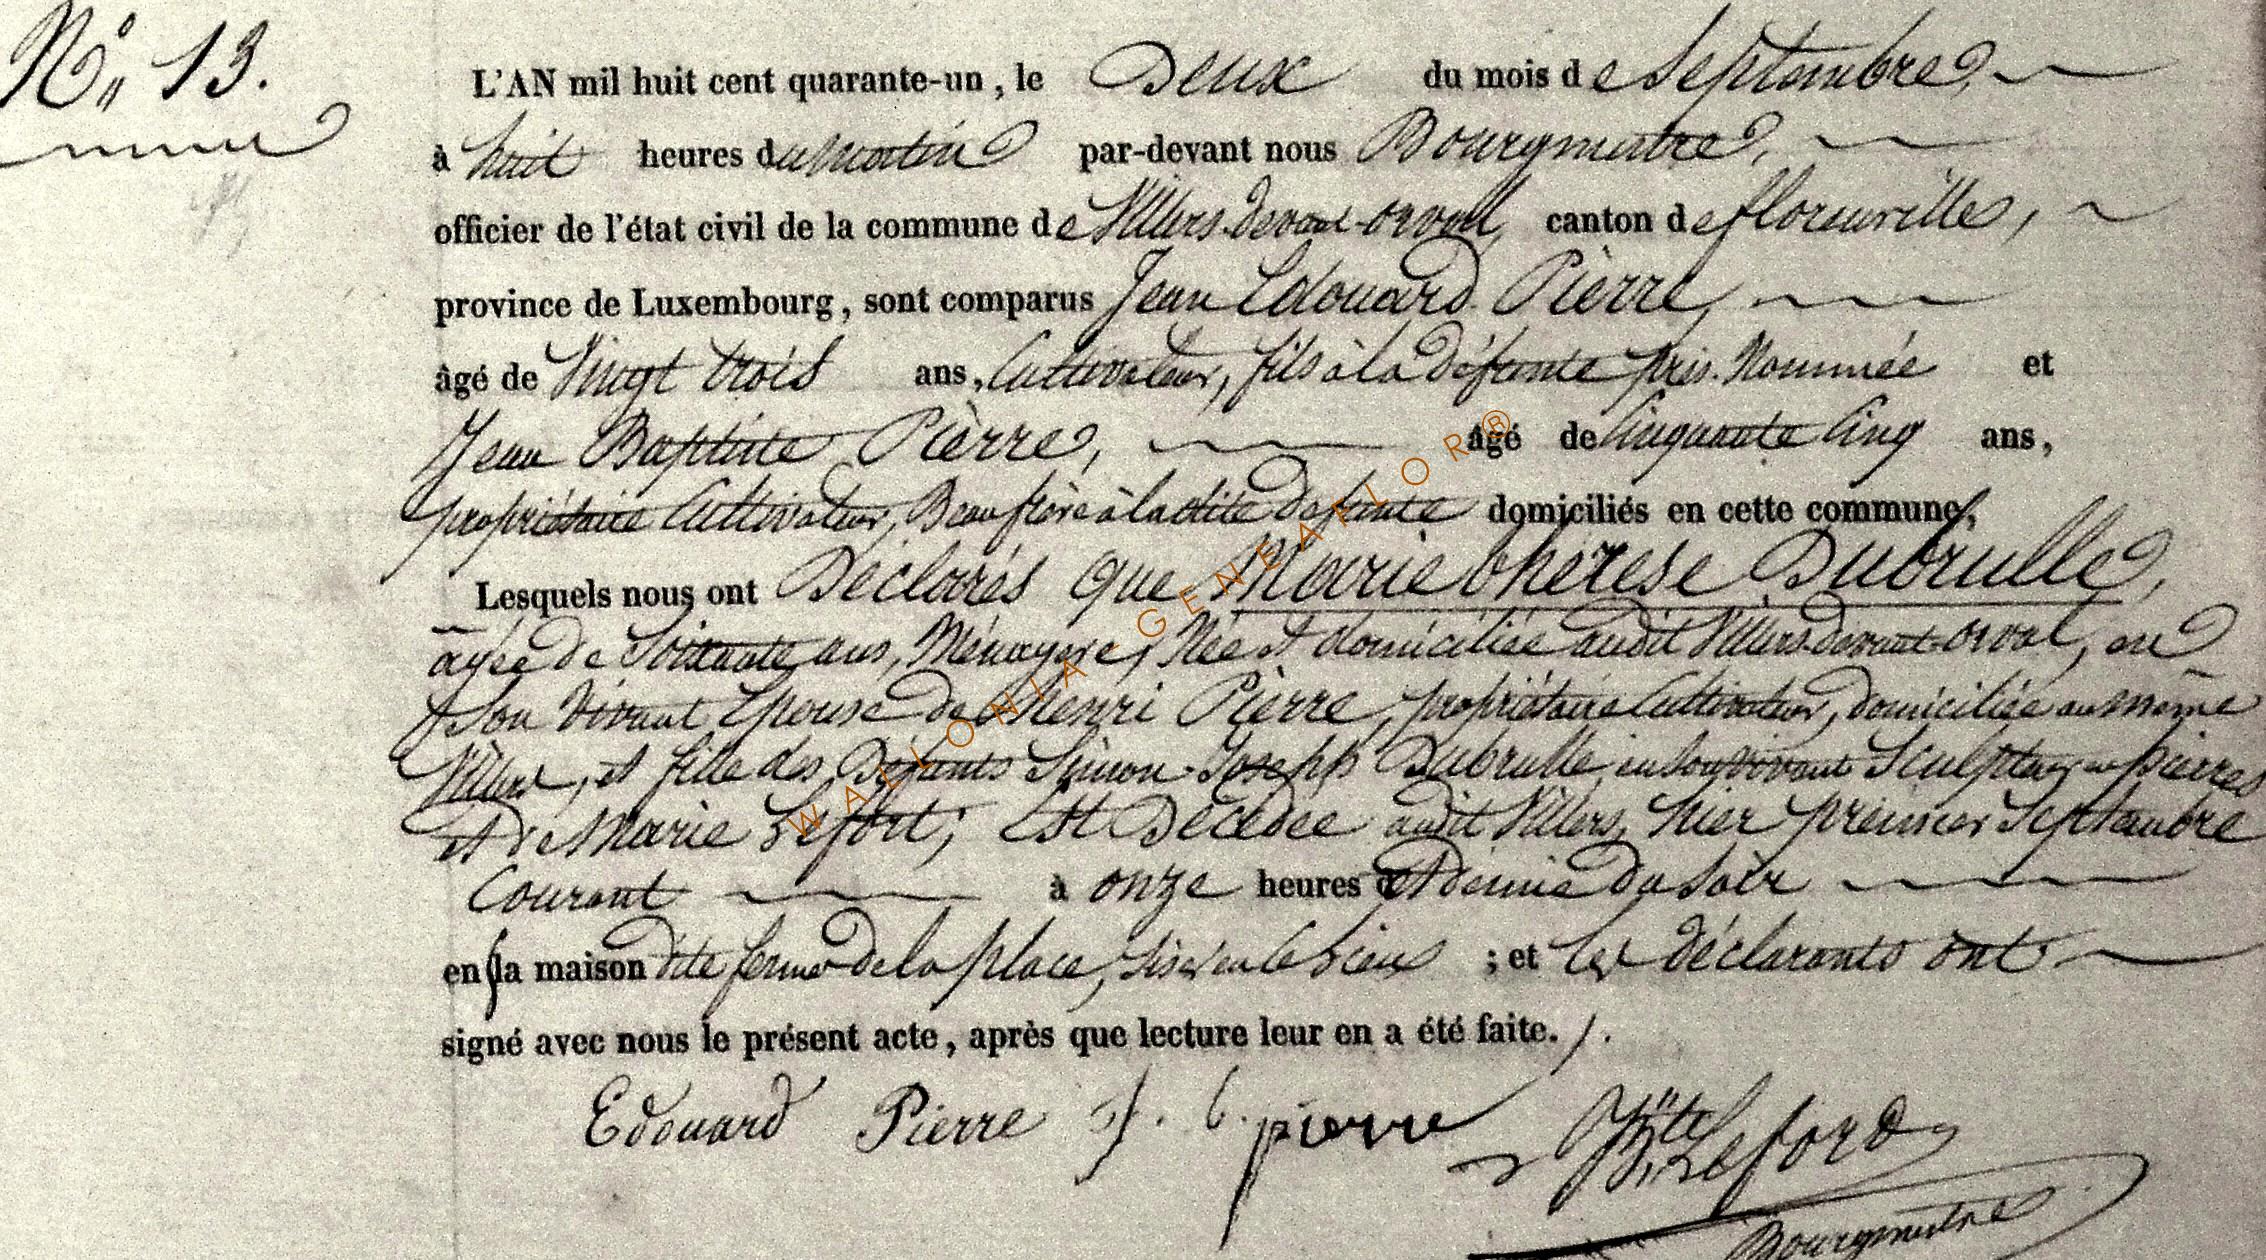 N° 13.
L'AN mil huit cent quarante-un, le Deux du mois de Septembre,
à huit heures du matin par-devant nous Bourgmestre,
officier de l'état civil de la commune de Villers-devant-orval, canton de florenville,
province de Luxembourg, sont comparus Jean Edouard Pièrre,
âgé de Vingt trois ans, Cultivateur, fils à la défunte prés. Nommée et
Jean Baptiste Pièrre, âgé de Cinquante Cinq ans,
propriétaire Cultivateur, Beau frère à la dite défunte domiciliés en cette commune,
Lesquels nous ont Déclarés que Marie thérèse Dubrulle,
agée de Soixante ans, Ménagère, Née et domiciliée audit Villers-devant-orval, en
Son vivant Epouse de Henri Pièrre, propriétaire Cultivateur, domiciliée au même
Villers, et fille des Défunts Simon-Joseph Dubrulle en Son vivant Sculpteur en pierres
et de Marie Lefort; Est Décédée audit Villers, hier premier Septembre
Courant à onze heures et demie du Soir
en la maison dite ferme de la place, Sise en ce lieu ; et les déclarants ont
signé avec nous le présent acte, après que lecture leur en a été faite. /.
Edouard Pierre J. B. pierre Bte Leford
Bourgmestre
WALLONIA-GENEAFLOR®